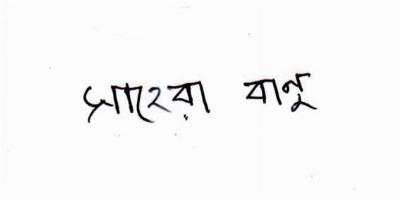 সাহেরা বানু